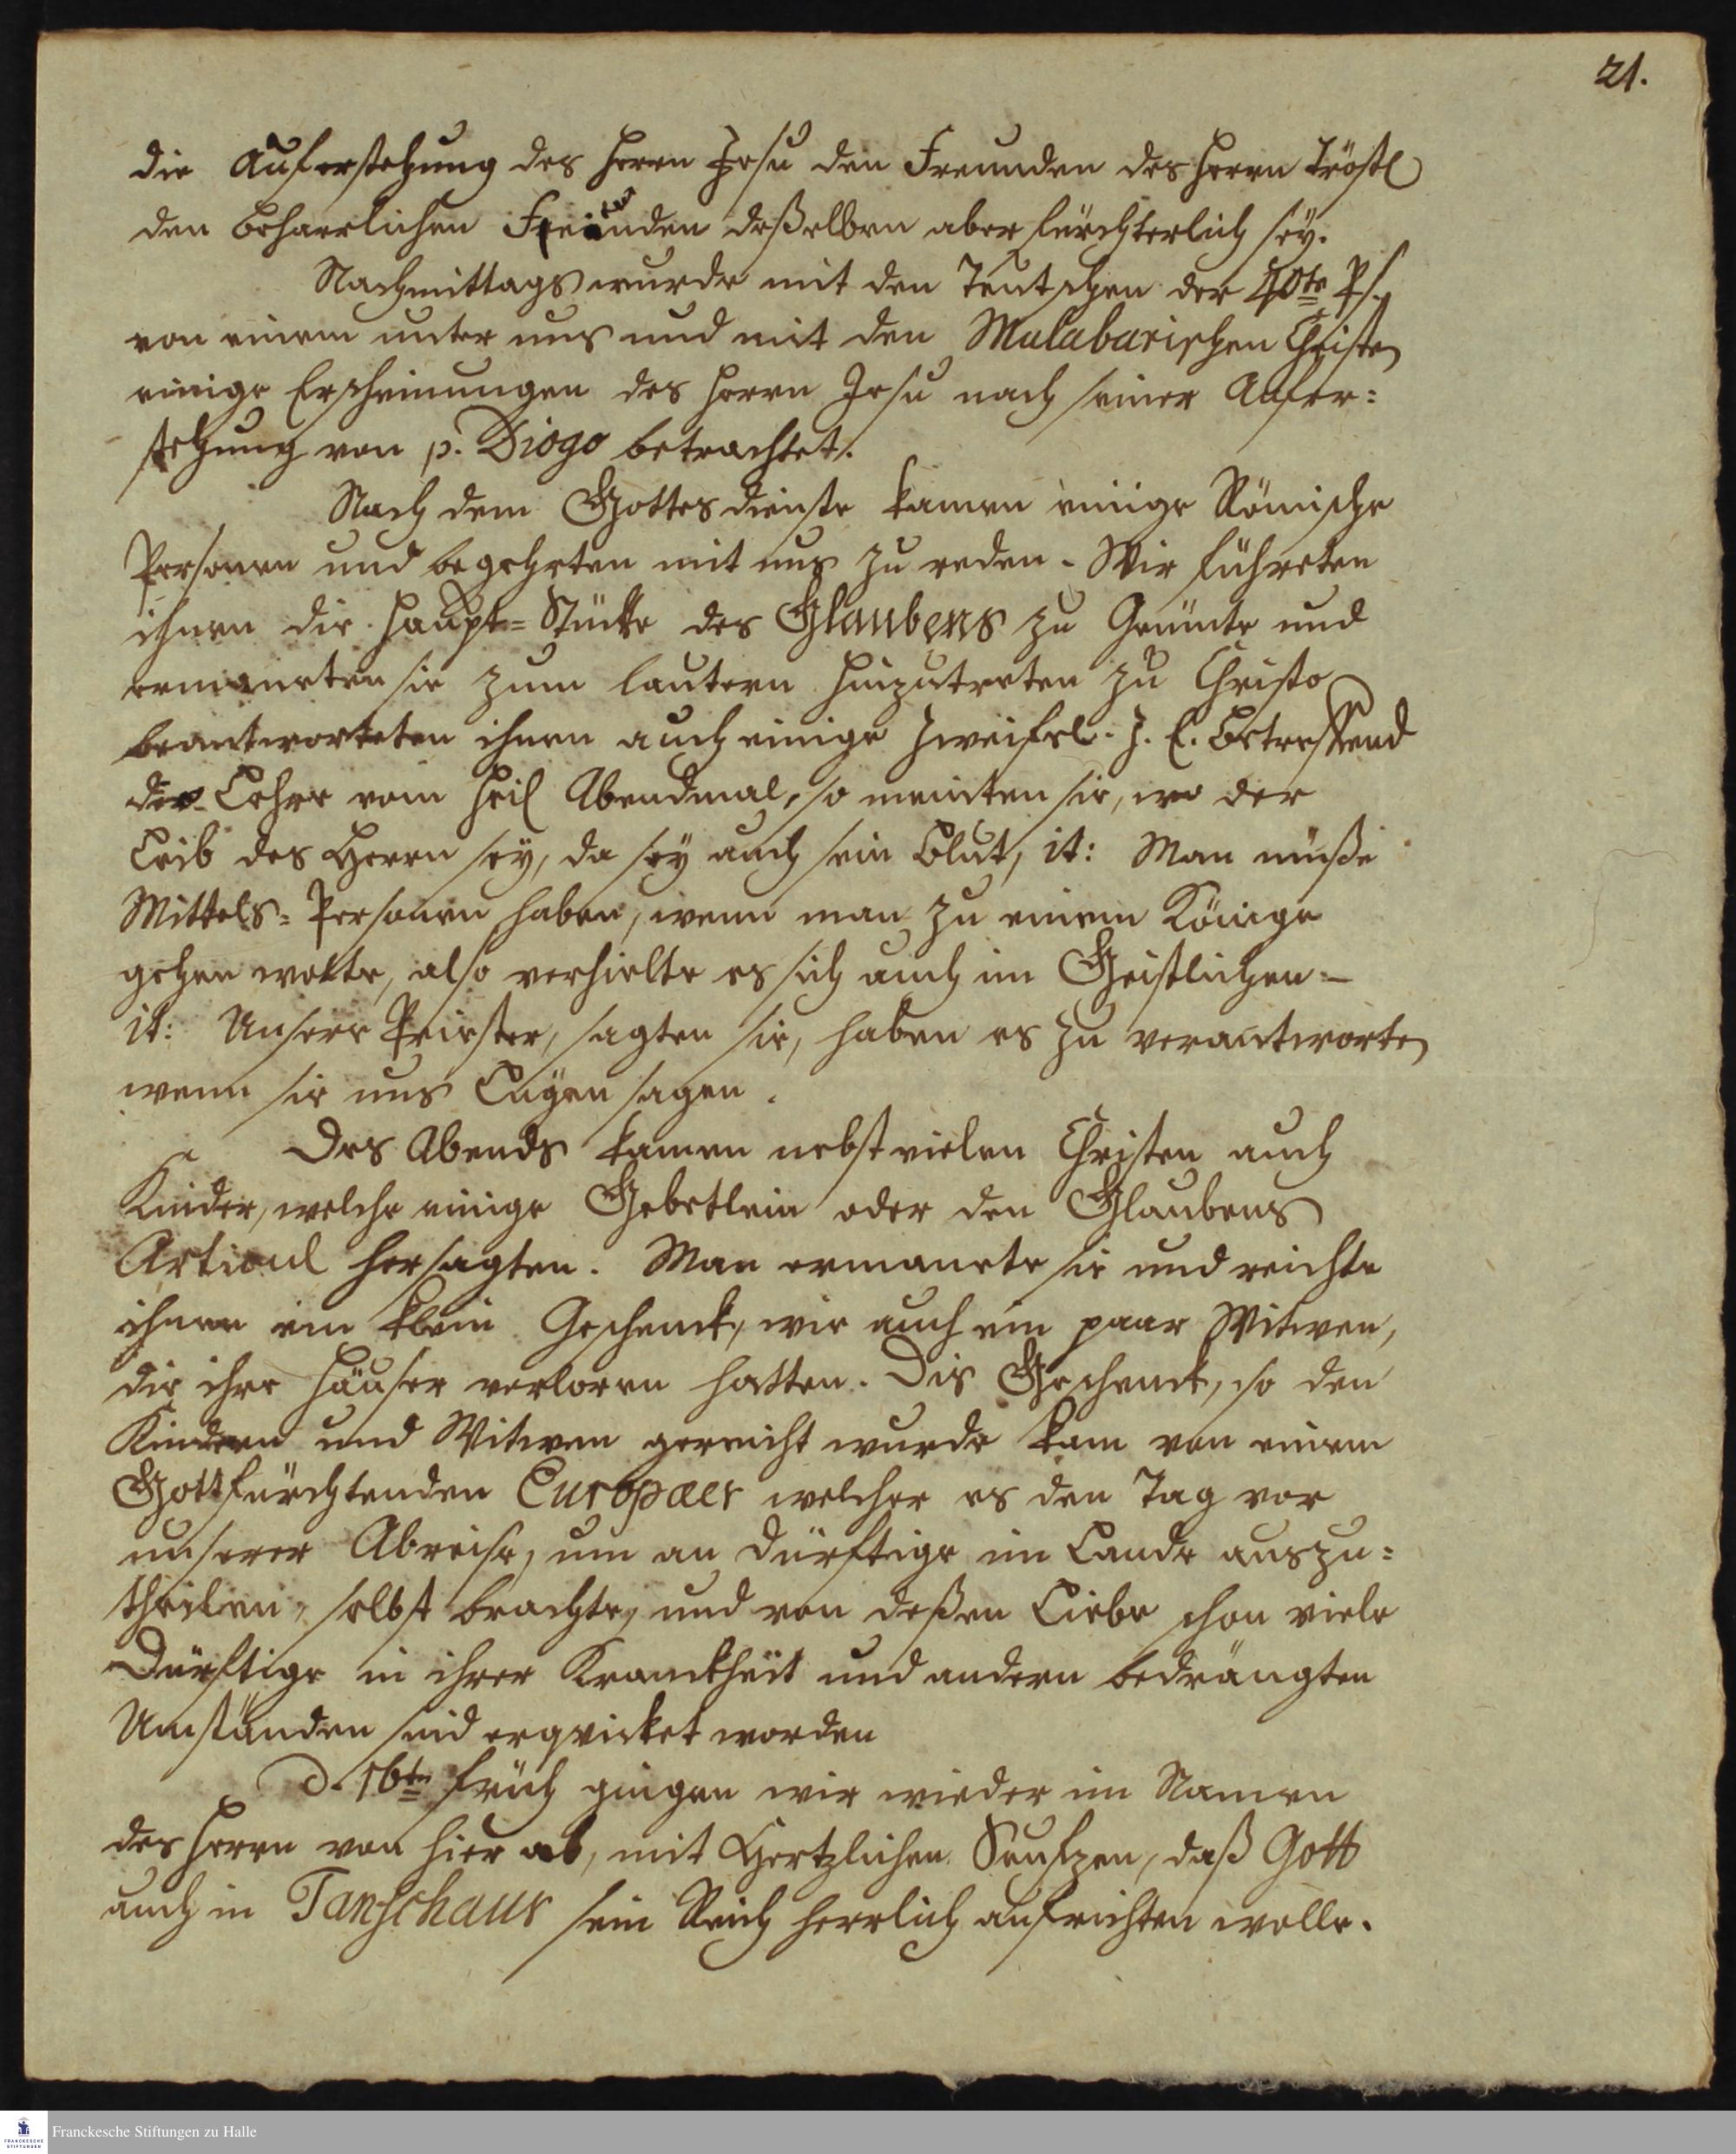 21.
die Auferstehung des Herrn Jesu den Freunden des Herrn tröstl
den beharrlichen Feinden deßelben aber fürchterlich seÿ.
Nachmittags wurde mit den Teutschen der 40te Ps.
von einem unter uns und mit den Malabarischen Christen
einige Erscheinungen des Herrn Jesu nach seiner Aufer=
stehung von p. Diogo betrachtet.
Nach dem Gottesdienste kamen einige Römische
Personen und begehrten mit uns zu reden. Wir führeten
ihnen die Haupt=Stücke des Glaubens zu Gemüte und
ermaneten sie zum lautern hinzutreten zu Christo
beantworteten ihnen auch einige Zweifel. Z. E. betreffend
der Lehre vom Heil Abendmal, so meinten sie, wo der
Leib des Herrn seÿ, da seÿ auch sein Blut, it: Man müße
Mittels=Personen haben, wenn man zu einem Könige
gehen wolte, also verhielte es sich auch im Geistlichen.
it: Unsere Priester, sagten sie, haben es zu verantworten
wenn sie uns Lügen sagen.
Des Abends kamen nebst vielen Christen auch
Kinder, welche einige Gebetlein oder den Glaubens
Articul hersagten. Man ermanete sie und reichte
ihnen ein klein Geschenck, wie auch ein paar Witwen,
die ihre Häuser verloren hatten. Dis Geschenck, so den
Kindern und Witwen gereicht wurde kam von einem
Gottfürchtenden Europäer welcher es den Tag vor
unserer Abreise, um an Dürftige im Lande auszu=
theilen, selbst brachte, und von deßen Liebe schon viele
Dürftige in ihrer Kranckheit und andern bedrängten
Umständen sind erqvicket worden
d. 16ten früh gingen wir wieder im Namen
des Herrn von hier ab, mit Hertzlichen Seufzen, daß Gott
auch in Tanschaur sein Reich herrlich aufrichten wolle.
Franckesche Stiftungen zu Halle